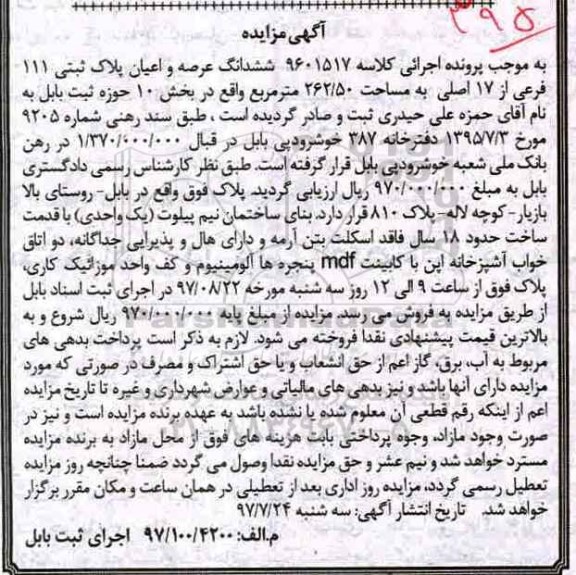 ۳۹۵
آگهی مزایده
به موجب پرونده اجرائی کلاسه ۹۶۰۱۵۱۷ ششدانگ عرصه و اعیان پلاک ثبتی ۱۱۱
فرعی از ۱۷ اصلی به مساحت ۲۶۲/۵۰ مترمربع واقع در بخش ۱۰ حوزه ثبت بابل به
نام آقای حمزه علی حیدری ثبت و صادر گردیده است ، طبق سند رهنی شماره ۹۲۰۵
مورخ ۱۳۹۵/۷/۳ دفترخانه ۳۸۷ خوشرودپی بابل در قبال ۱/۳۷۰/۰۰۰/۰۰۰ در رهن
بانک ملی شعبه خوشرودپی بابل قرار گرفته است. طبق نظر کارشناس رسمی دادگستری
بابل به مبلغ ۹۷۰/۰۰۰/۰۰۰ ریال ارزیابی گردید. پلاک فوق واقع در بابل- روستای بالا
بازیار- کوچه لاله- پلاک ۸۱۰ قرار دارد. بنای ساختمان نیم پیلوت (یک واحدی) با قدمت
ساخت حدود ۱۸ سال فاقد اسکلت بتن آرمه و دارای هال و پذیرایی جداگانه، دو اتاق
خواب آشپزخانه اپن با کابینت mdf پنجره ها آلومینیوم و کف واحد موزائیک کاری،
پلاک فوق از ساعت ۹ الی ۱۲ روز سه شنبه مورخه ۹۷/۰۸/۲۲ در اجرای ثبت اسناد بابل
از طریق مزایده به فروش می رسد. مزایده از مبلغ پایه ۹۷۰/۰۰۰/۰۰۰ ریال شروع و به
بالاترین قیمت پیشنهادی نقدا فروخته می شود. لازم به ذکر است پرداخت بدهی های
مربوط به آب، برق، گاز اعم از حق انشعاب و یا حق اشتراک و مصرف در صورتی که مورد
مزایده دارای آنها باشد و نیز بدهی های مالیاتی و عوارض شهرداری و غیره تا تاریخ مزایده
اعم از اینکه رقم قطعی آن معلوم شده یا نشده باشد به عهده برنده مزایده است و نیز در
صورت وجود مازاد، وجوه پرداختی بابت هزینه های فوق از محل مازاد به برنده مزایده
مسترد خواهد شد و نیم عشر و حق مزایده نقدا وصول می گردد ضمنا چنانچه روز مزایده
تعطیل رسمی گردد، مزایده روز اداری بعد از تعطیلی در همان ساعت و مکان مقرر برگزار
خواهد شد. تاریخ انتشار آگهی: سه شنبه ۹۷/۷/۲۴
م.الف: ۹۷/۱۰۰/۴۲۰۰ اجرای ثبت بابل